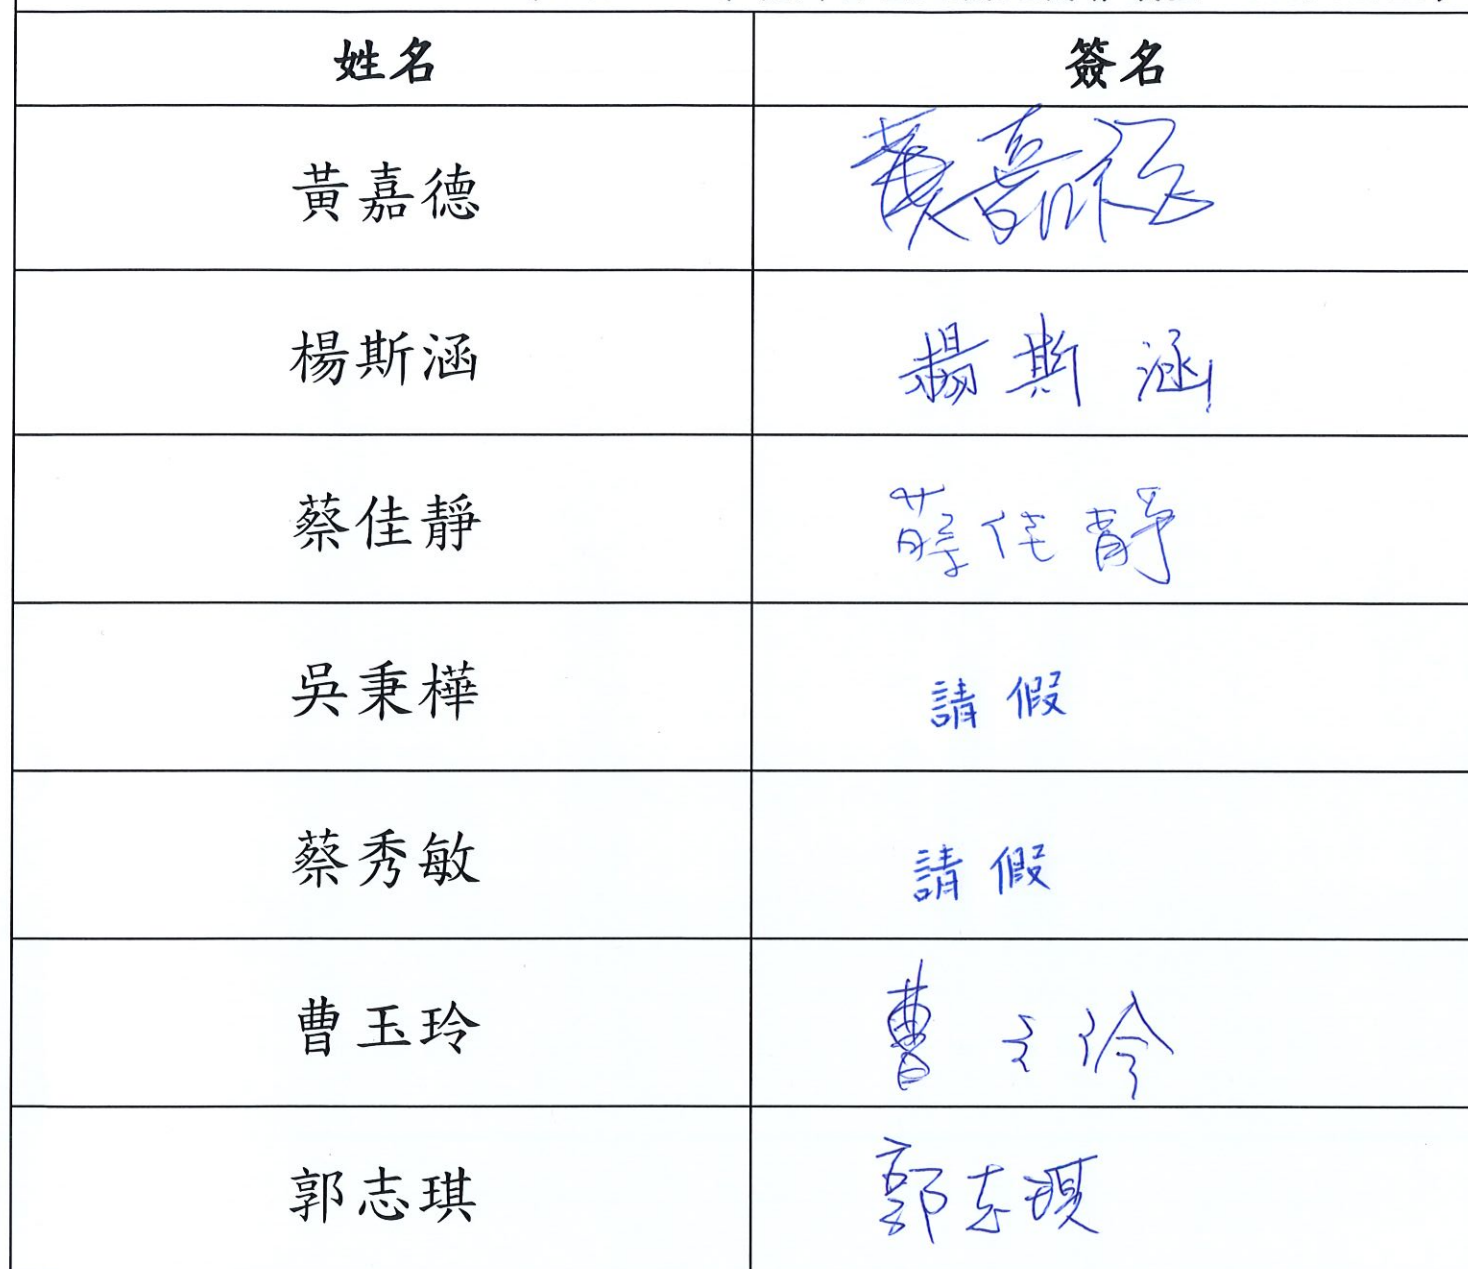 姓名 簽名
黃嘉德 黃嘉德
楊斯涵 楊斯涵
蔡佳靜 蔡佳靜
吳秉樺 請假
蔡秀敏 請假
曹玉玲 曹玉玲
郭志琪 郭志琪